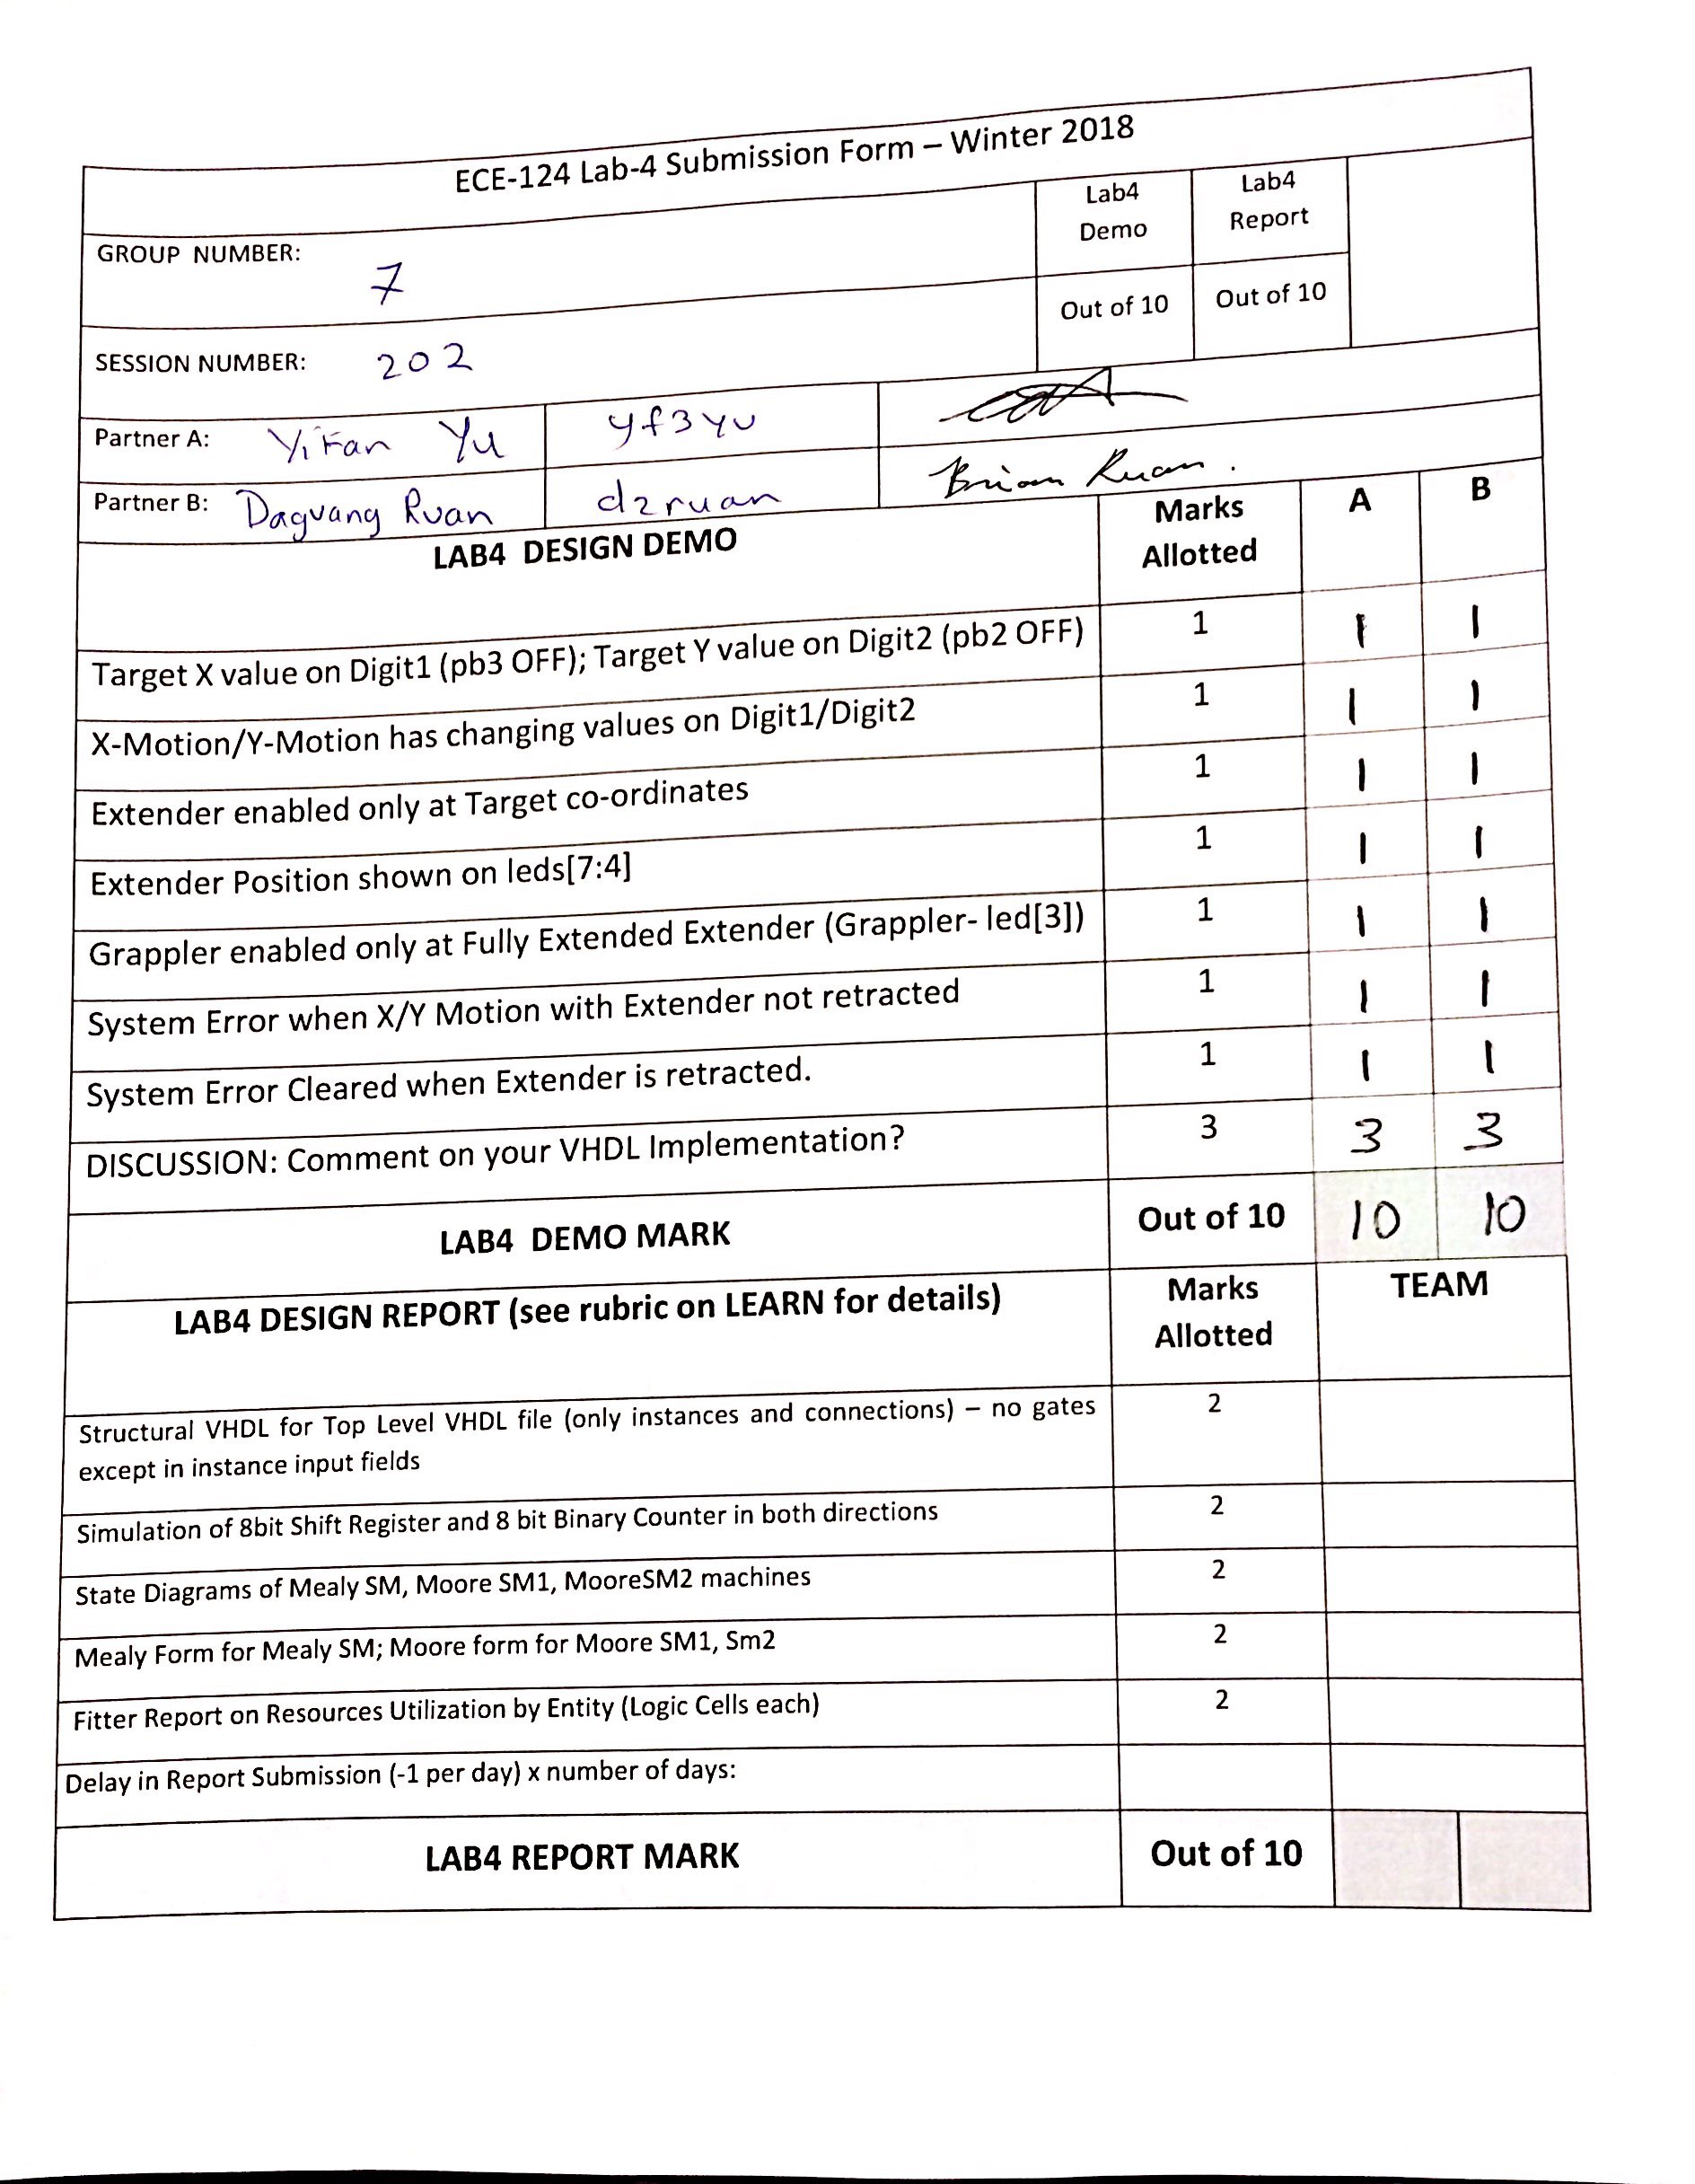 ECE-124 Lab-4 Submission Form – Winter 2018
GROUP NUMBER: 7
Lab4 Demo
Lab4 Report
Out of 10
Out of 10
SESSION NUMBER: 202
Partner A: Yifan Yu yf3yu
Partner B: Daguang Ruan d2ruan Brian Ruan.
LAB4 DESIGN DEMO Marks Allotted A B
Target X value on Digit1 (pb3 OFF); Target Y value on Digit2 (pb2 OFF) 1 1 1
X-Motion/Y-Motion has changing values on Digit1/Digit2 1 1 1
Extender enabled only at Target co-ordinates 1 1 1
Extender Position shown on leds[7:4] 1 1 1
Grappler enabled only at Fully Extended Extender (Grappler- led[3]) 1 1 1
System Error when X/Y Motion with Extender not retracted 1 1 1
System Error Cleared when Extender is retracted. 1 1 1
DISCUSSION: Comment on your VHDL Implementation? 3 3 3
LAB4 DEMO MARK Out of 10 10 10
LAB4 DESIGN REPORT (see rubric on LEARN for details) Marks Allotted TEAM
Structural VHDL for Top Level VHDL file (only instances and connections) – no gates 2
except in instance input fields
Simulation of 8bit Shift Register and 8 bit Binary Counter in both directions 2
State Diagrams of Mealy SM, Moore SM1, MooreSM2 machines 2
Mealy Form for Mealy SM; Moore form for Moore SM1, Sm2 2
Fitter Report on Resources Utilization by Entity (Logic Cells each) 2
Delay in Report Submission (-1 per day) x number of days:
LAB4 REPORT MARK Out of 10